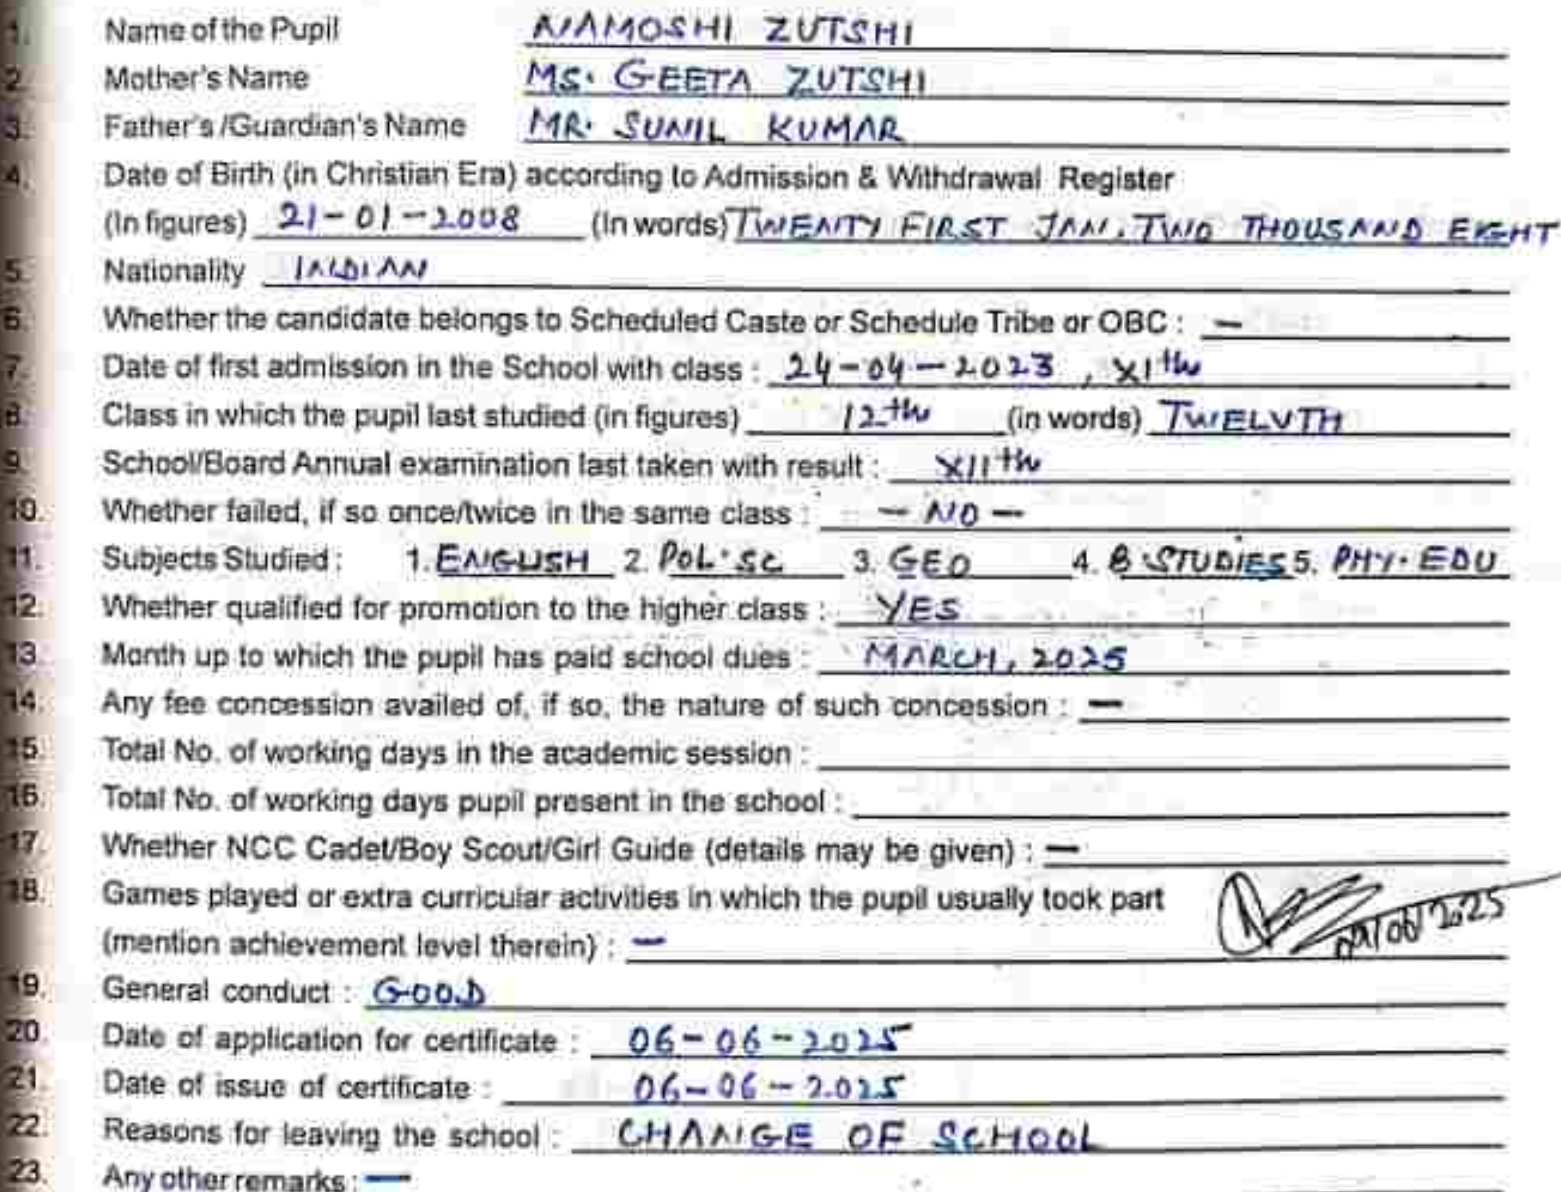 1. Name of the Pupil NAMOSHI ZUTSHI
2. Mother's Name MS. GEETA ZUTSHI
3. Father's/Guardian's Name MR. SUNIL KUMAR
4. Date of Birth (in Christian Era) according to Admission & Withdrawal Register
(In figures) 21-01-2008 (In words) TWENTY FIRST JAN. TWO THOUSAND EIGHT
5. Nationality INDIAN
6. Whether the candidate belongs to Scheduled Caste or Schedule Tribe or OBC : —
7. Date of first admission in the School with class : 24-04-2023, XIth
8. Class in which the pupil last studied (in figures) 12th (in words) TWELVTH
9. School/Board Annual examination last taken with result : XIIth
10. Whether failed, if so once/twice in the same class : — NO —
11. Subjects Studied : 1. ENGLISH 2. POL.SC 3. GEO 4. B.STUDIES 5. PHY. EDU
12. Whether qualified for promotion to the higher class : YES
13. Month up to which the pupil has paid school dues : MARCH, 2025
14. Any fee concession availed of, if so, the nature of such concession : —
15. Total No. of working days in the academic session :
16. Total No. of working days pupil present in the school :
17. Whether NCC Cadet/Boy Scout/Girl Guide (details may be given) : —
18. Games played or extra curricular activities in which the pupil usually took part
(mention achievement level therein) : —
19. General conduct : GOOD
20. Date of application for certificate : 06-06-2025
21. Date of issue of certificate : 06-06-2025
22. Reasons for leaving the school : CHANGE OF SCHOOL
23. Any other remarks : —